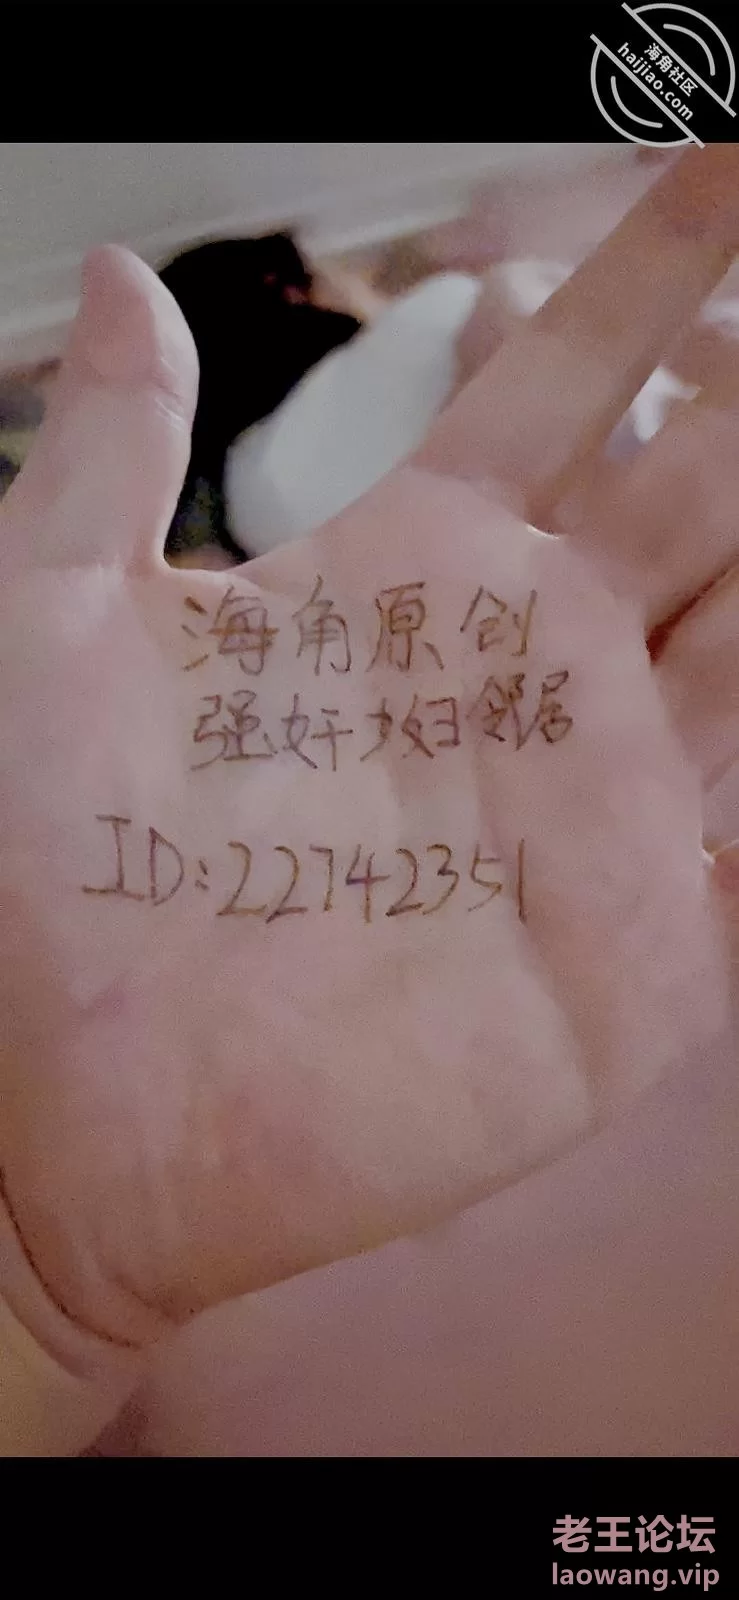 海角社区
haijiao.com
海角原创
强奸少妇邻居
ID:22742351
老王论坛
laowang.vip